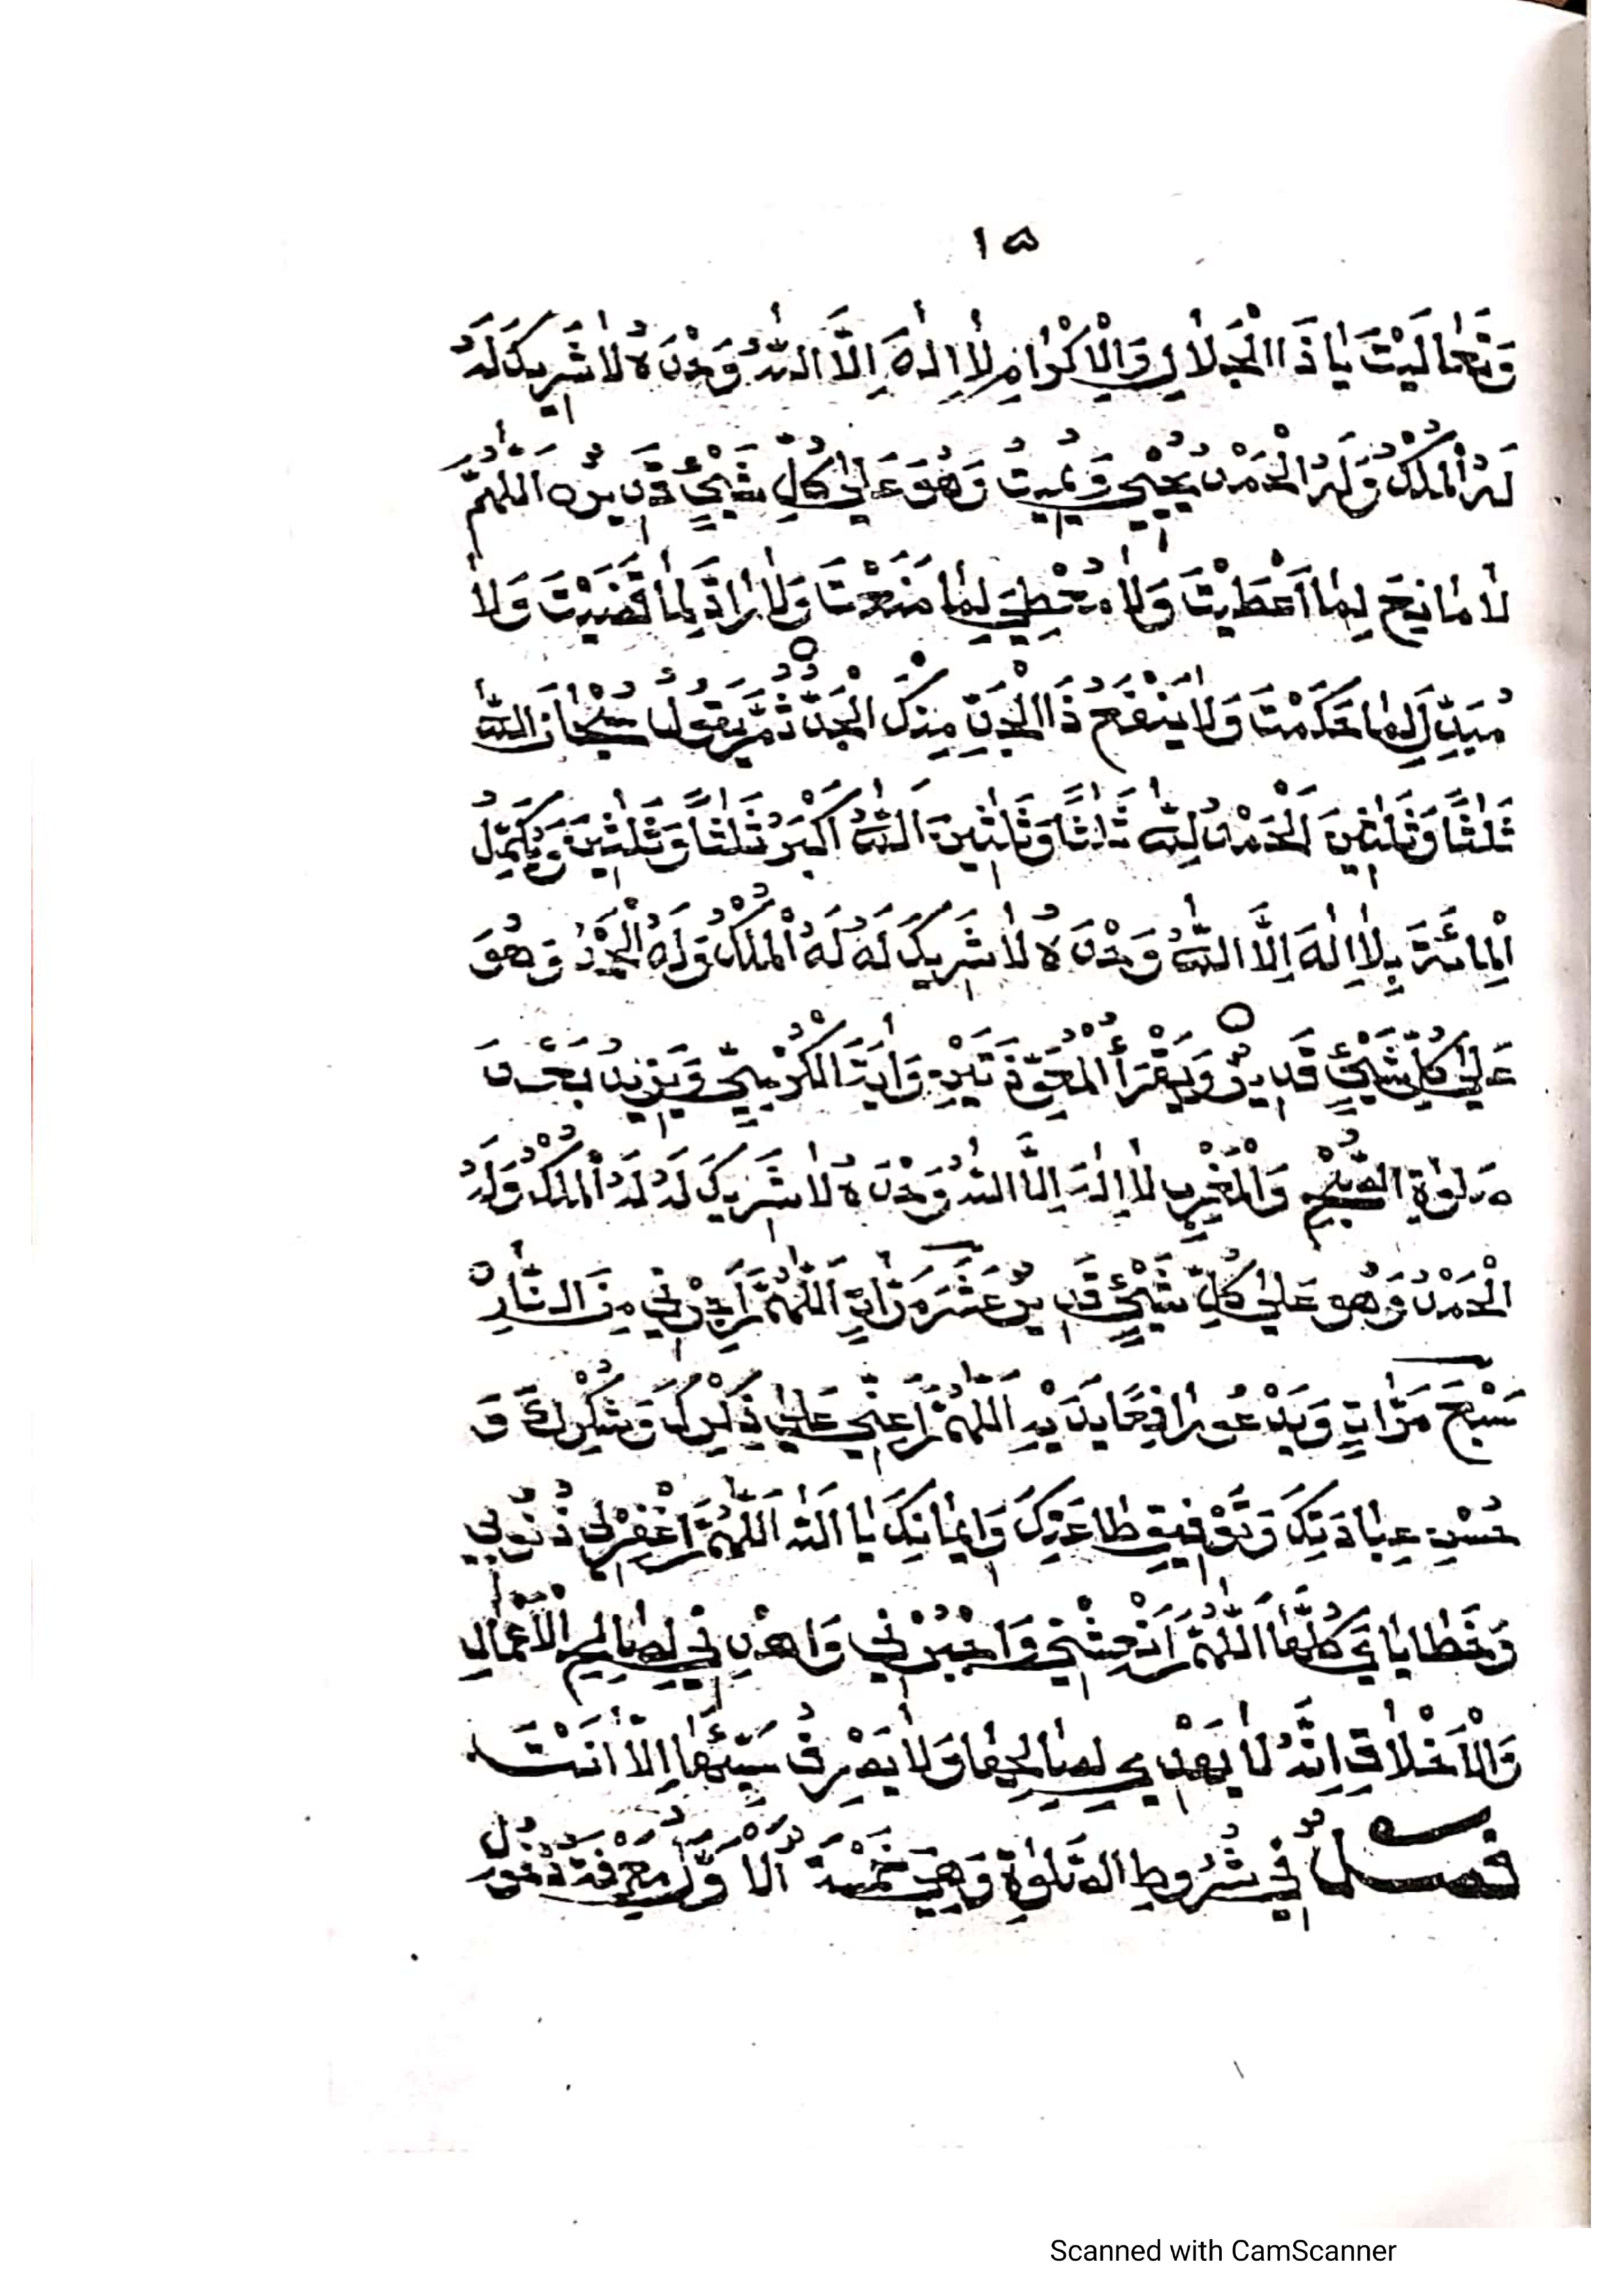 ١٥
وَتَعَالَيْتَ يَا ذَا الْجَلَالِ وَالْاِكْرَامِ لَا اِلٰهَ اِلَّا اللّٰهُ وَحْدَهُ لَا شَرِيكَ لَهُ
لَهُ الْمُلْكُ وَلَهُ الْحَمْدُ يُحْيِي وَيُمِيتُ وَهُوَ عَلٰي كُلِّ شَيْئٍ قَدِيرٌ اَللّٰهُمَّ
لَا مَانِعَ لِمَا اَعْطَيْتَ وَلَا مُعْطِيَ لِمَا مَنَعْتَ وَلَا رَادَّ لِمَا قَضَيْتَ وَلَا
مُبَدِّلَ لِمَا حَكَمْتَ وَلَا يَنْفَعُ ذَا الْجَدِّ مِنْكَ الْجَدُّ ثُمَّ يَقُولُ سُبْحَانَ اللّٰهِ
ثَلٰثًا وَثَلٰثِينَ اَلْحَمْدُ لِلّٰهِ ثَلٰثًا وَثَلٰثِينَ اَللّٰهُ اَكْبَرُ ثَلٰثًا وَثَلٰثِينَ وَيُكَمِّلُ
الْمِائَةَ بِلَا اِلٰهَ اِلَّا اللّٰهُ وَحْدَهُ لَا شَرِيكَ لَهُ لَهُ الْمُلْكُ وَلَهُ الْحَمْدُ وَهُوَ
عَلٰي كُلِّ شَيْئٍ قَدِيرٌ وَيَقْرَأُ الْمُعَوِّذَتَيْنِ وَاٰيَةَ الْكُرْسِيِّ وَيَزِيدُ بَعْدَ
صَلٰوةِ الصُّبْحِ وَالْمَغْرِبِ لَا اِلٰهَ اِلَّا اللّٰهُ وَحْدَهُ لَا شَرِيكَ لَهُ لَهُ الْمُلْكُ وَلَهُ
الْحَمْدُ وَهُوَ عَلٰي كُلِّ شَيْئٍ قَدِيرٌ عَشَرَ مَرَّاتٍ اَللّٰهُمَّ اَجِرْنِي مِنَ النَّارِ
سَبْعَ مَرَّاتٍ وَيَدْعُو رَافِعًا يَدَيْهِ اَللّٰهُمَّ اَعِنِّي عَلٰي ذِكْرِكَ وَشُكْرِكَ وَ
حُسْنِ عِبَادَتِكَ وَتَوْفِيقِ طَاعَتِكَ وَاِيمَانِكَ يَا اَللّٰه اَللّٰهُمَّ اغْفِرْلِي ذُنُوبِي
وَخَطَايَايَ كُلَّهَا اَللّٰهُمَّ اَنْعِشْنِي وَاجْبُرْنِي وَاهْدِنِي لِصَالِحِ الْاَعْمَالِ
وَالْاَخْلَاقِ اِنَّهُ لَا يَهْدِي لِصَالِحِهَا وَلَا يَصْرِفُ سَيِّئَهَا اِلَّا اَنْتَ
فَصْلٌ فِي شُرُوطِ الصَّلٰوةِ وَهِيَ خَمْسَةٌ اَلْاَوَّلُ مَعْرِفَةُ دُخُولِ
Scanned with CamScanner